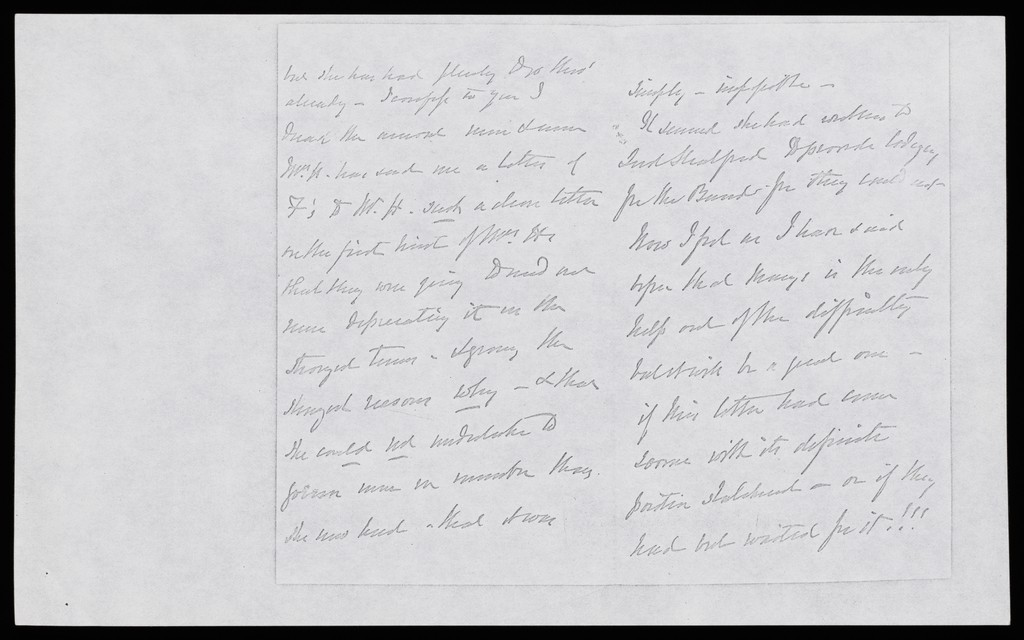 but she has had plenty Drs this
already - I enough to you I
the arrival
Mrs. H. has sent me a letter of
F's to W. H. such a clever letter
on the first hint of Mrs. H's
that they were going to send out
more deprecating it in the
strongest terms - & giving the
strongest reasons why - & that
she could not undertake to
govern more in number than
she now had - that it was
simply - impossible -
It seemed she had written to
Lord Stratford to provide lodging
for the Band - for they could not -
Now I feel as I have said
before that is the only
help out of the difficulty
but it will be a good one -
if this letter had come
sooner with its definite
positive statement - or if they
had but waited for it!!!